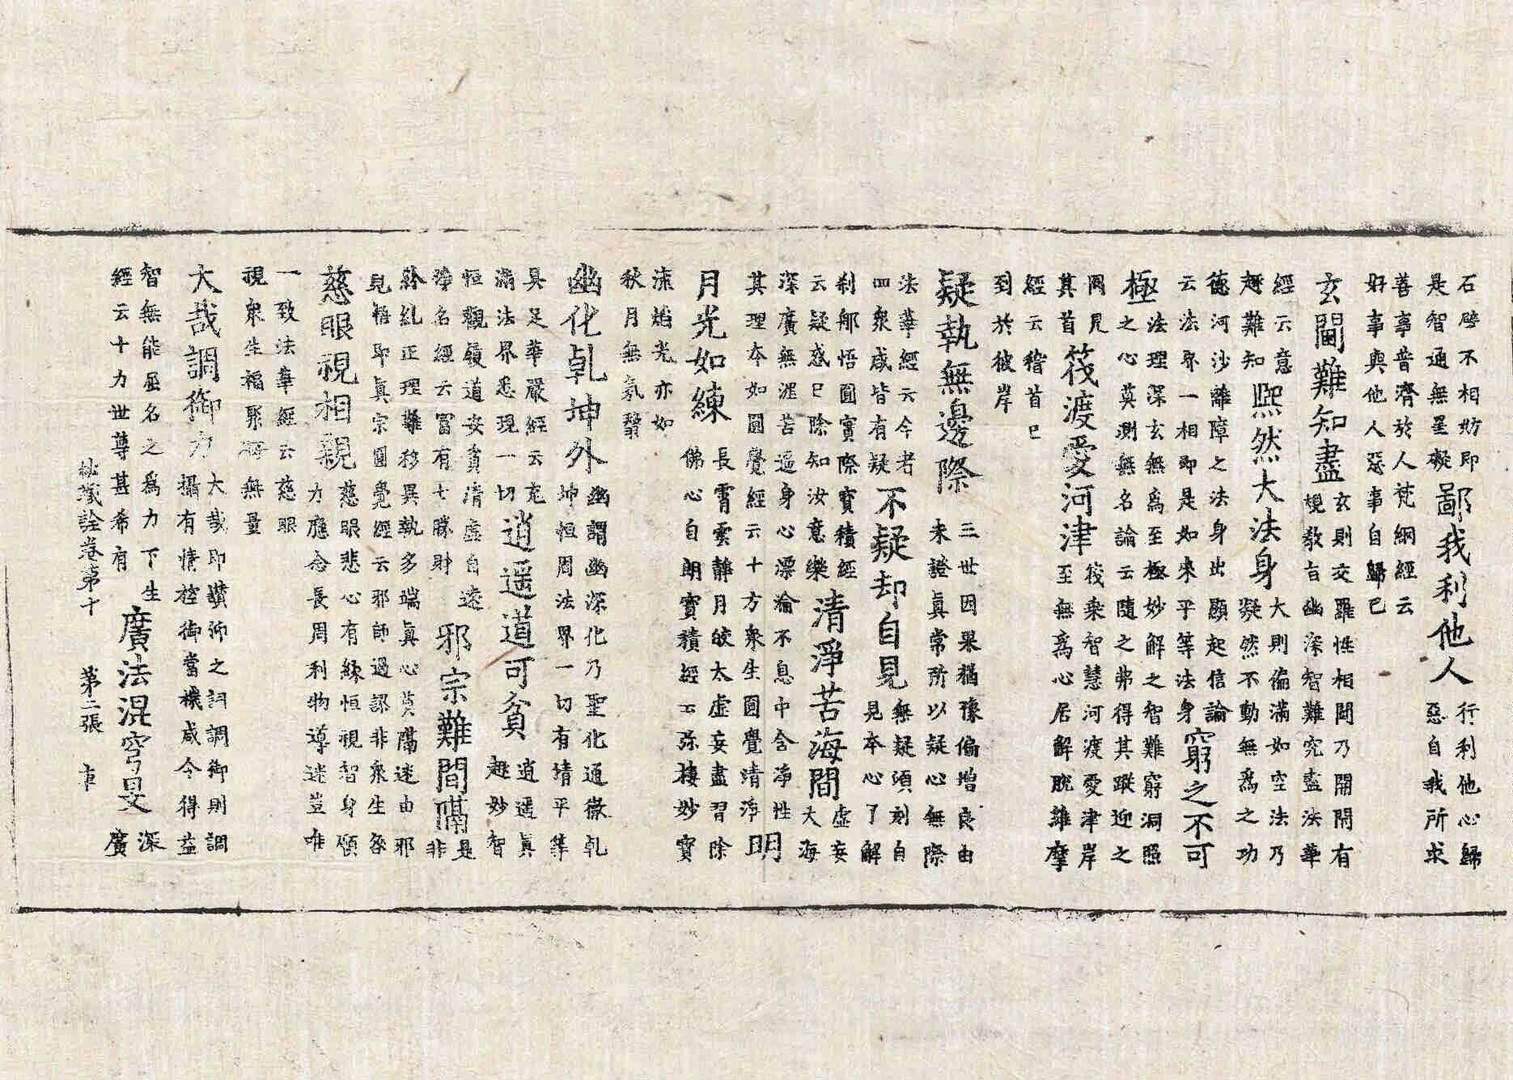 石壁不相妨即
是智通無罣礙
鄙我利他人
行利他心歸
惡自我所求
善事普濟於人梵綱經云
好事與他人惡事自歸已
玄閫難知盡
玄則交羅性相閫乃開閉有
幾教旨幽深智難究盡法華
經云意
趣難知
凞然大法身
大則偏滿如空法乃
凝然不動無為之功
德河沙離障之法身出顯起信論
云法界一相即是如來平等法身
窮之不可
極
法理深玄無為至極妙解之智難窮洞照
之心莫測無名論云隨之弗得其蹤迎之
罔見
其首
筏渡愛河津
筏乘智慧河渡愛津岸
至無為心居解脫維摩
經云稽首已
到於彼岸
疑執無邊際
三世因果猶豫偏增良由
未證真常所以疑心無際
法華經云今者
四衆咸皆有疑
不疑却自見
無疑頃刻自
見本心了解
刹那悟圓實際寶積經
云疑惑已除知汝意樂
清淨苦海間
虛妄
大海
深廣無涯苦逼身心漂淪不息中含淨性
其理本如圓覺經云十方衆生圓覺清淨
明
月光如練
長霄雲靜月皎太虛妄盡習除
佛心自朗寶積經云弥樓妙寶
流燄光亦如
秋月無氛翳
幽化乹坤外
幽謂幽深化乃聖化通徹乹
坤恒周法界一切有情平等
具足華嚴經云充
滿法界悉現一切
逍遥道可貧
逍遥真
趣妙智
恒觀履道安貧清虛自遠
淨名經云富有七勝財
邪宗難間隔
是
非
紛糺正理難移異執多端真心莫隔迷由邪
見悟即真宗圓覺經云邪師過謬非衆生咎
慈眼視相親
慈眼悲心有緣恒視智身願
力應念長周利物導迷豈唯
一致法華經云慈眼
視衆生福聚海無量
大哉調御力
大哉即讚仰之詞調御則調
攝有情控御當機咸令得益
智無能屈名之為力下生
經云十力世尊甚希有
廣法混穹旻
深
廣
秘藏詮卷第十 第二張 車